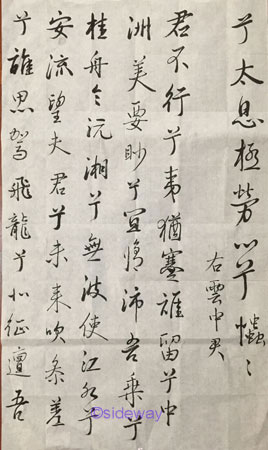 兮太息極勞心兮𢥞〻
右雲中君
君不行兮夷猶蹇誰留兮中
洲美要眇兮宜脩沛吾乘兮
桂舟令沅湘兮無波使江水兮
安流望夫君兮未來吹參差
兮誰思駕飛龍兮北征邅吾
©sideway